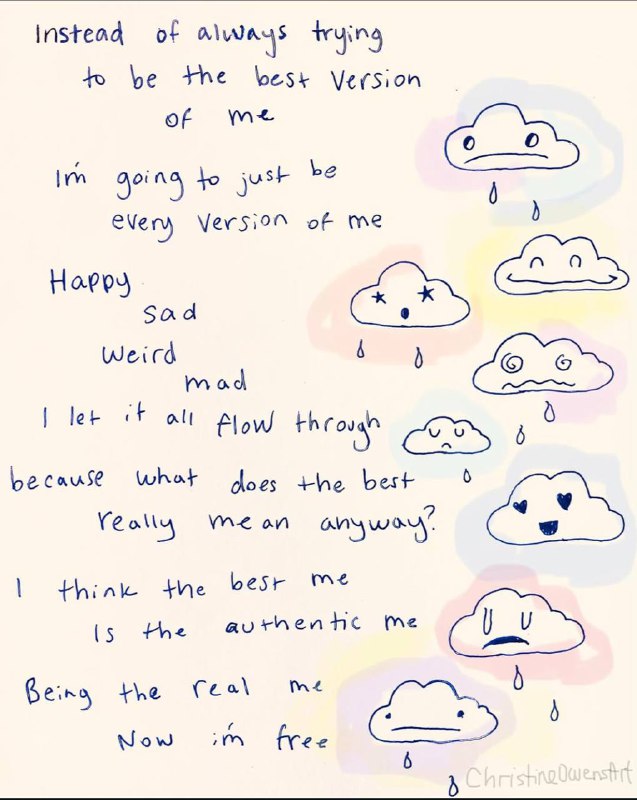 Instead of always trying
to be the best version
of me
I'm going to just be
every version of me
Happy
sad
weird
mad
I let it all flow through
because what does the best
really mean anyway?
I think the best me
Is the authentic me
Being the real me
Now i'm free
ChristineOwensArt